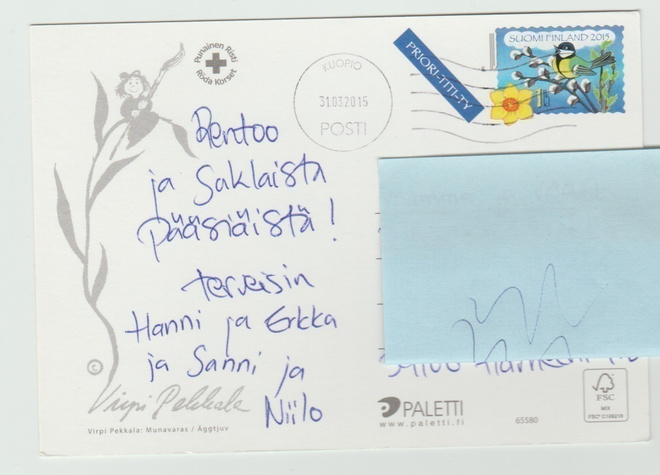 Punainen Risti
Röda Korset
KUOPIO
31.03.2015
POSTI
PRIORI-TITI-TY
SUOMI FINLAND 2015
Rentoo
ja Suklaista
pääsiäistä!
terveisin
Hanni ja Erkka
ja Sanni ja
Niilo
©
Virpi Pekkala
Virpi Pekkala: Munavaras / Äggtjuv
PALETTI
www.paletti.fi
65580
FSC
MIX